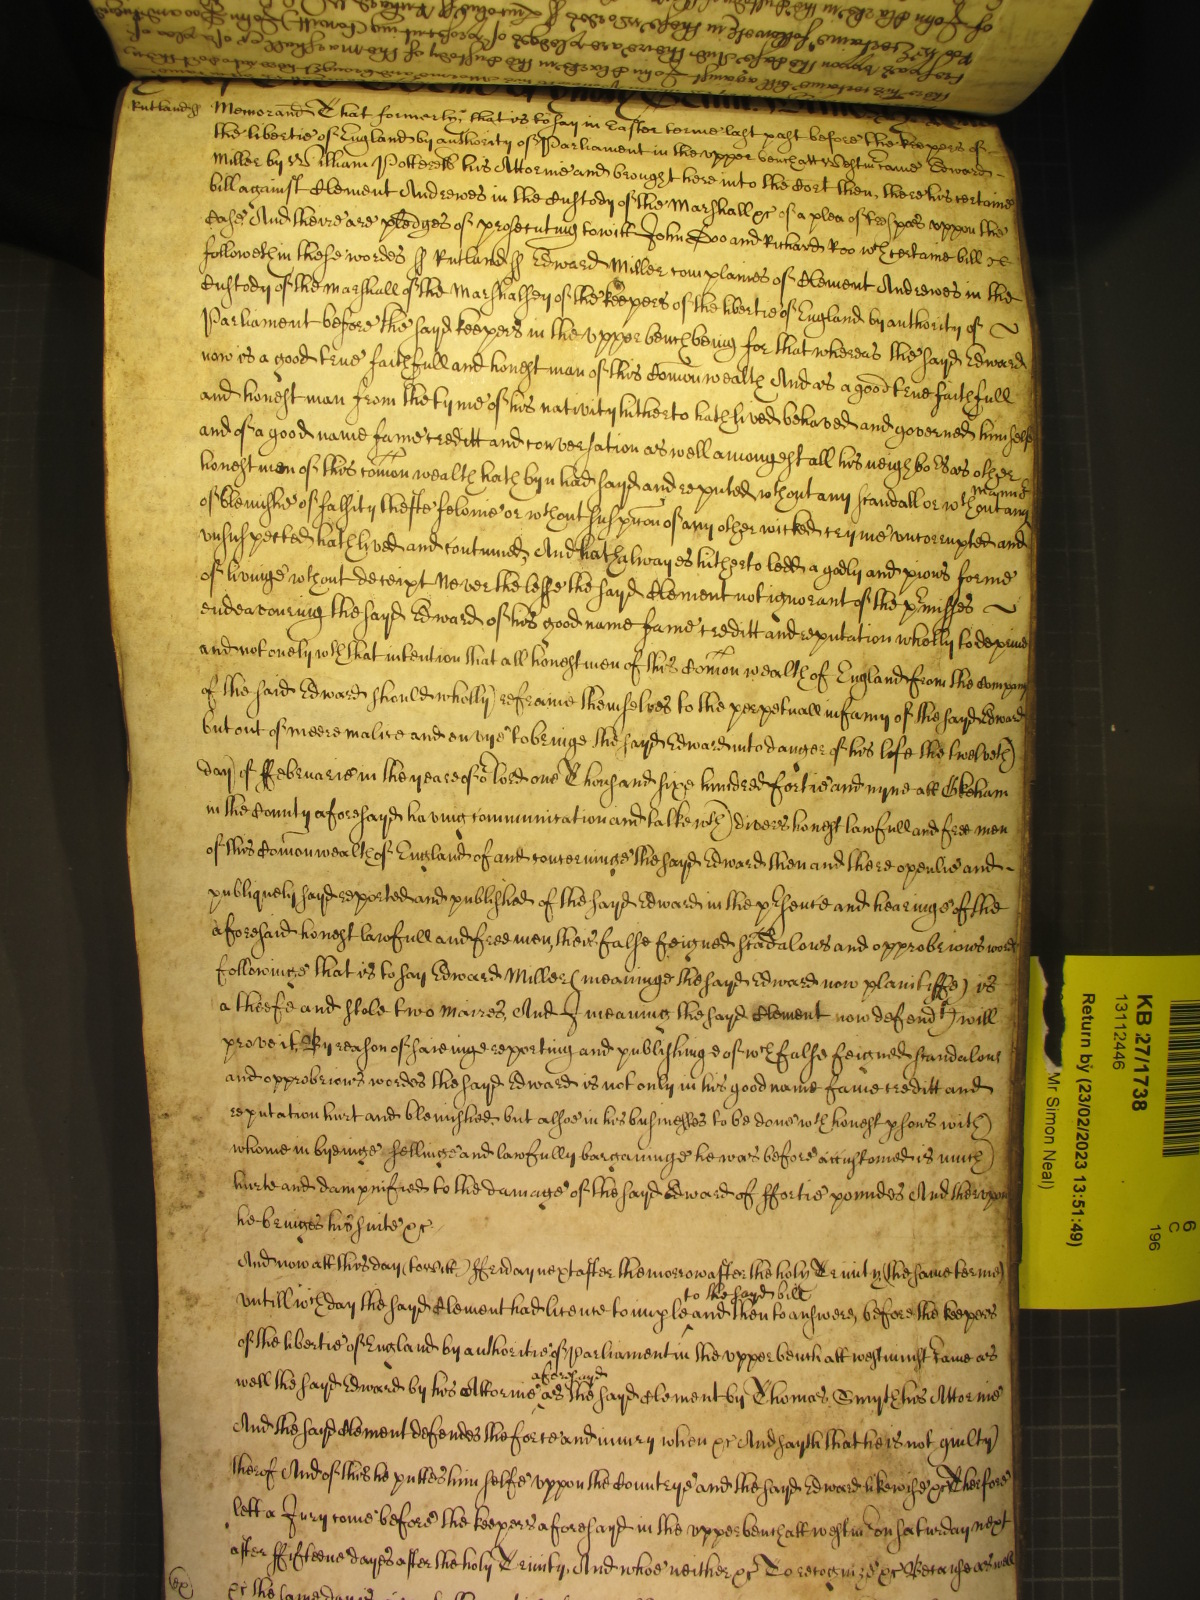 Rutland ss Memorand That formerly, that is to say in Easter terme last past before the keepers of
the libertie of England by authority of Parliament in the upper bench att Westm came Edward
Miller by William Potterell his Attornie and brought here into the Cort then, there his certaine
bill against Clement Andrewes in the Custody of the Marshall &c of a plea of trespas uppon the
Case, And there are pledges of prosecuting to witt John Doo and Richard Roo wch certaine bill
followeth in these wordes ss Rutland ss Edward Miller complaines of Clement Andrewes in the
Custody of the Marshall of the Marshalsey of the keepers of the libertie of England by authority of
Parliament before the sayd keepers in the upper bench being for that whereas the sayd Edward
now is a good true faithfull and honest man of this Comon wealth And as a good true faithfull
and honest man from the tyme of his nativity hitherto hath lived behaved and governed himselfe
and of a good name fame creditt and conversation as well amongest all his neighbors as other
honest men of this comon wealth hath byn had sayd and reputed wthout any scandall or wthout any
of blemishe of falsity thefte felonie or wthout suspicon of any other wicked cryme uncorrupted and
unsuspected hath lived and contynued, And hath alwayes hitherto ledd a godly and pious forme
of livinge wthout deceipt Neverthelesse the sayd Clement not ignorant of the pmisses
endeavouring the sayd Edward of his good name fame creditt and reputation wholly to deprive
and not onely wth that intention that all honest men of this Comon wealth of England from the company
of the said Edward should wholly refraine themselves to the perpetuall infamy of the sayd Edward
but out of meere malice and envye to bringe the sayd Edward into danger of his life the twelveth
day of ffebruarie in the yeare of or lord one Thousand sixe hundred fortie and nyne att Okeham
in the County aforesayd having communication and talke wth divers honest lawfull and free men
of this Comonwealth of England of and concerninge the sayd Edward then and there openlie and
publiquely sayd reported and published of the sayd Edward in the psence and hearinge of the
aforesaid honest lawfull and free men, theis false feigned scandalous and opprobrious words
followinge that is to say Edward Miller (meaninge the sayd Edward now plaintiffe) is
a theefe and stole two maires, And I meaning the sayd Clement now defendt) will
prove it, By reason of sayinge reporting and publishinge of wch false feigned scandalous
and opprobrious wordes the sayd Edward is not only in his good name fame creditt and
reputation hurt and blemished but alsoe in his businesses to be done wth honest psons with
whome in byeinge sellinge and lawfully bargaininge he was before accustomed is much
hurte and dampnified to the damage of the sayd Edward of ffortie poundes And therupon
he bringes his suite &c
And now att this day (to witt) ffriday next after the morrow after the holy Trinity (the same terme)
untill wch day the sayd Clement had licence to imple and then to answere, before the keepers
to the sayd bill
of the libertie of England by authoritie of Parliament in the upper bench att westminst came as
well the sayd Edward by his Attornie as the sayd Clement by Thomas Smyth his Attornie
aforesayd
And the sayd Clement defendes the force and injury when &c And sayth that he is not guilty
therof And of this he puttes himselfe uppon the Countrye and the sayd Edward likewise &c Therfore
lett a Jury come before the keepers aforesayd in the upper bench att westm on saturday next
after ffifteene dayes after the holy Trinity, And whoe neither &c To recognize &c Because as well
&c the same day is
KB 27/1738
13112446
Return by (23/02/2023 13:51:49)
Mr Simon Neal)
6
C
196